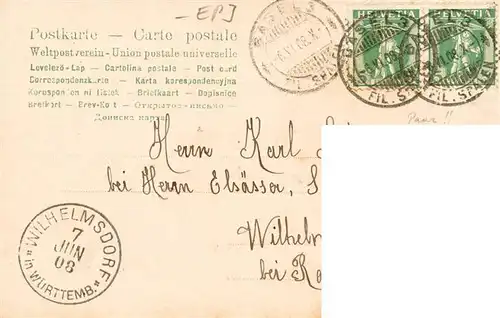 -EPJ
Postkarte — Carte postale
Weltpostverein - Union postale universelle
Levelező-Lap — Cartolina postale — Post card
Correspondenzkarte — Karta korespondencyjna
Briefkaart — Dopisnice
Brefkort — Brev-Kort — Открытое письмо
Дописна карта
BASEL 3
HELVETIA HELVETIA
FIL. FIL.
Papa !!
Herrn Karl
bei Herrn Elsässer, S
Wilhel
bei Ra
WILHELMSDORF
7
JUN
08
in WÜRTTEMB.